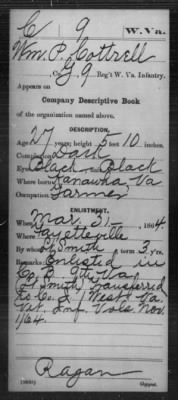 C 9 W. Va.
Wm. P. Cottrell
Co. J, 9 Reg't W. Va. Infantry.
Appears on
Company Descriptive Book
of the organization named above.
DESCRIPTION.
Age 27 years; height 5 feet 10 inches.
Complexion Dark
Eyes Black; Black
Where born Kanawha Va
Occupation Farmer
ENLISTMENT.
When Mar 31, 1864.
Where Fayetteville
By whom Smith term 3 y'rs.
Remarks: Enlisted in
Co. B 9th Va
Smith transferred
to Co. I 1 West. Va.
Vet. Inf. Vols. Nov.
1/64.
Ragan
Copyist.